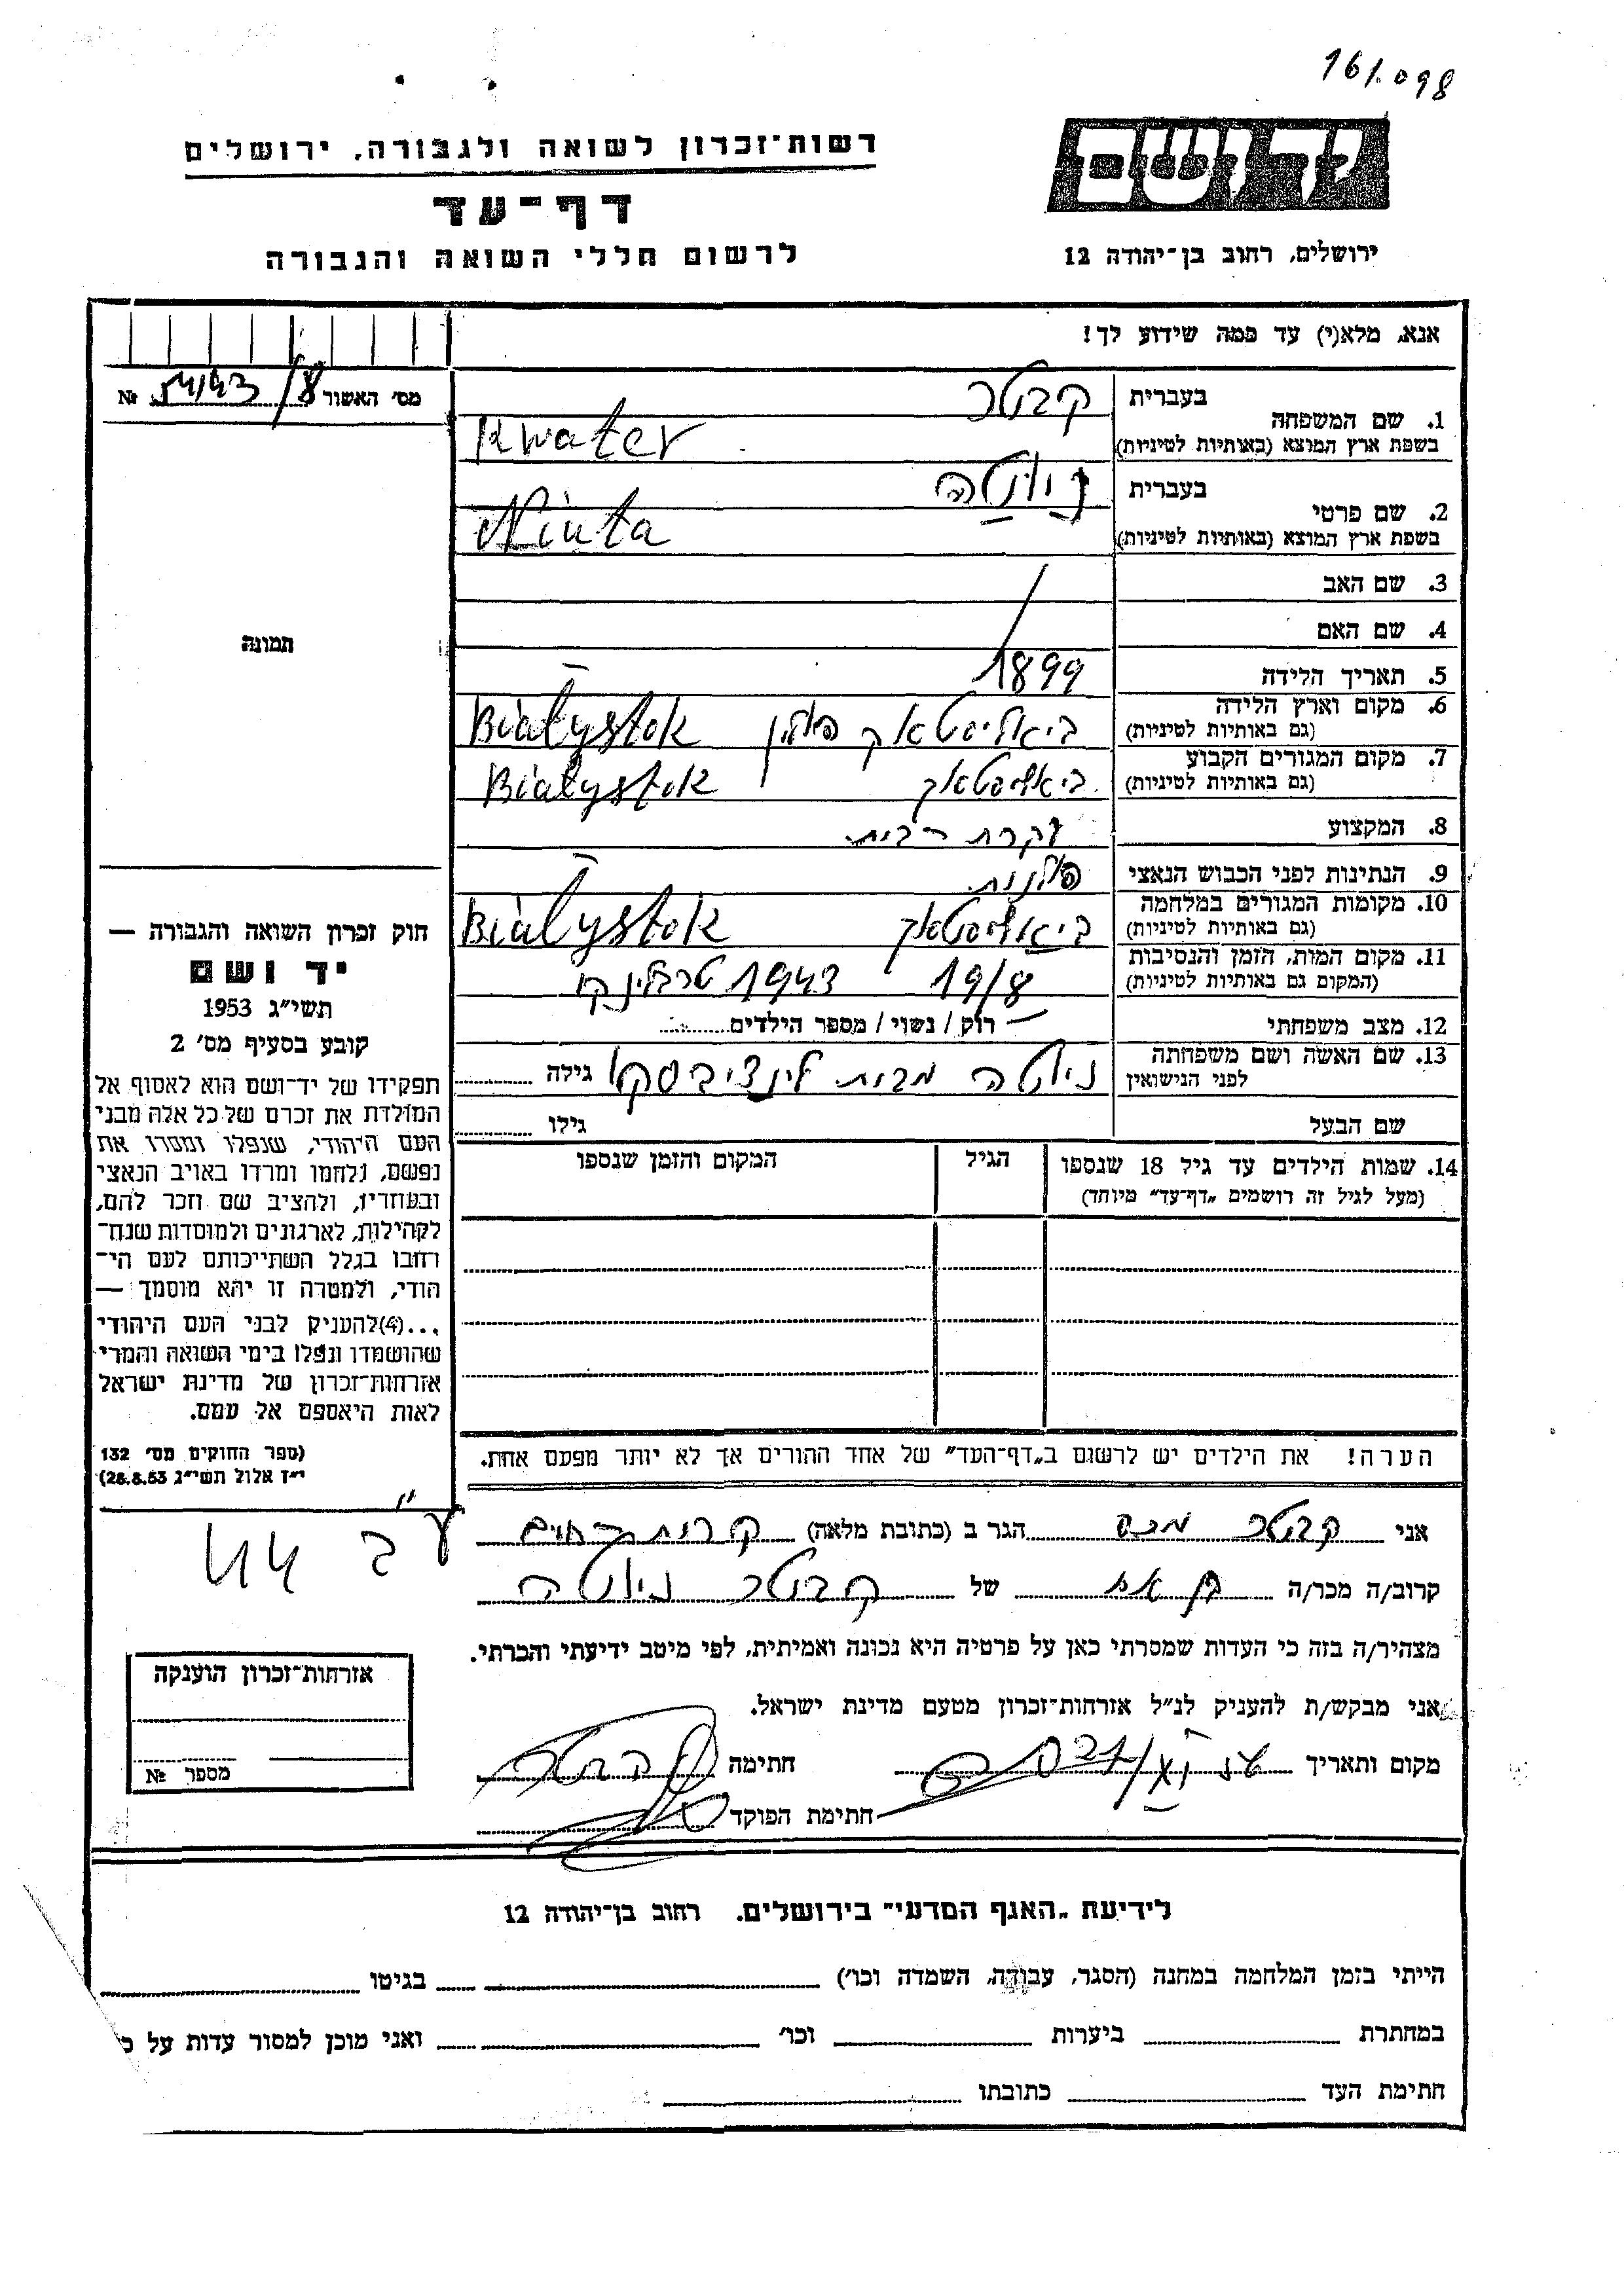 161.098
רשות־זכרון לשואה ולגבורה, ירושלים
יד ושם
דף־עד
לרשום חללי השואה והגבורה
ירושלים, רחוב בן־יהודה 12
אנא, מלא(י) עד כמה שידוע לך!
מס' האשור 8/ №
1. שם המשפחה בעברית קבטר
בשפת ארץ המוצא (באותיות לטיניות) Kwater
2. שם פרטי בעברית ניוטה
בשפת ארץ המוצא (באותיות לטיניות) Niuta
3. שם האב
4. שם האם
תמונה
5. תאריך הלידה 1899
6. מקום וארץ הלידה (גם באותיות לטיניות) ביאליסטאק פולין Białystok
7. מקום המגורים הקבוע (גם באותיות לטיניות) ביאליסטאק Białystok
8. המקצוע עקרת הבית
9. הנתינות לפני הכבוש הנאצי פולנית
10. מקומות המגורים במלחמה (גם באותיות לטיניות) ביאליסטאק Białystok
11. מקום המות, הזמן והנסיבות (המקום גם באותיות לטיניות) 19/8 1943 טרבלינקי
12. מצב משפחתי רוק / נשוי / מספר הילדים
13. שם האשה ושם משפחתה לפני הנישואין ניוטה מבית גילה
שם הבעל גילו
14. שמות הילדים עד גיל 18 שנספו הגיל המקום והזמן שנספו
(מעל לגיל זה רושמים „דף־עד" מיוחד)
הערה! את הילדים יש לרשום ב„דף־העד" של אחד ההורים אך לא יותר מפעם אחת.
חוק זכרון השואה והגבורה —
יד ושם
תשי"ג 1953
קובע בסעיף מס' 2
תפקידו של יד־ושם הוא לאסוף אל
המולדת את זכרם של כל אלה מבני
העם היהודי, שנפלו ומסרו את
נפשם, נלחמו ומרדו באויב הנאצי
ובעוזריו, ולהציב שם וזכר להם,
לקהילות, לארגונים ולמוסדות שנח־
רחבו בגלל השתייכותם לעם הי־
הודי, ולמטרה זו יהא מוסמך —
...(4)להעניק לבני העם היהודי
שהושמדו ונפלו בימי השואה והמרי
אזרחות־זכרון של מדינת ישראל
לאות היאספם אל עמם.
(ספר החוקים מס' 132
י"ז אלול תשי"ג 28.8.53)
אני קבטר הגר ב (כתובת מלאה) קרית חיים
קרוב/ה מכר/ה בן אח של קבטר ניוטה
מצהיר/ה בזה כי העדות שמסרתי כאן על פרטיה היא נכונה ואמיתית, לפי מיטב ידיעתי והכרתי.
אני מבקש/ת להעניק לנ"ל אזרחות־זכרון מטעם מדינת ישראל.
מקום ותאריך חתימה
חתימת הפוקד
אזרחות־זכרון הוענקה
מספר №
לידיעת „האגף המדעי" בירושלים. רחוב בן־יהודה 12
הייתי בזמן המלחמה במחנה (הסגר, עבודה, השמדה וכו') בגיטו
במחתרת ביערות וכו' ואני מוכן למסור עדות על כ
חתימת העד כתובתו